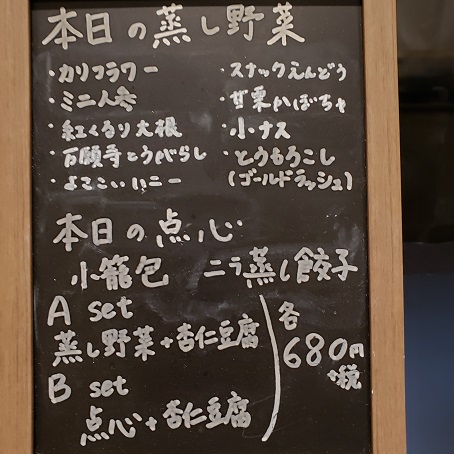 本日の蒸し野菜
・カリフラワー ・スナックえんどう
・ミニ人参 ・甘栗かぼちゃ
・紅くるり大根 ・小ナス
・万願寺とうがらし ・とうもろこし
(ゴールドラッシュ)
本日の点心
小籠包 ニラ蒸し餃子
A set
蒸し野菜+杏仁豆腐
B set
点心+杏仁豆腐
各
680円
+税